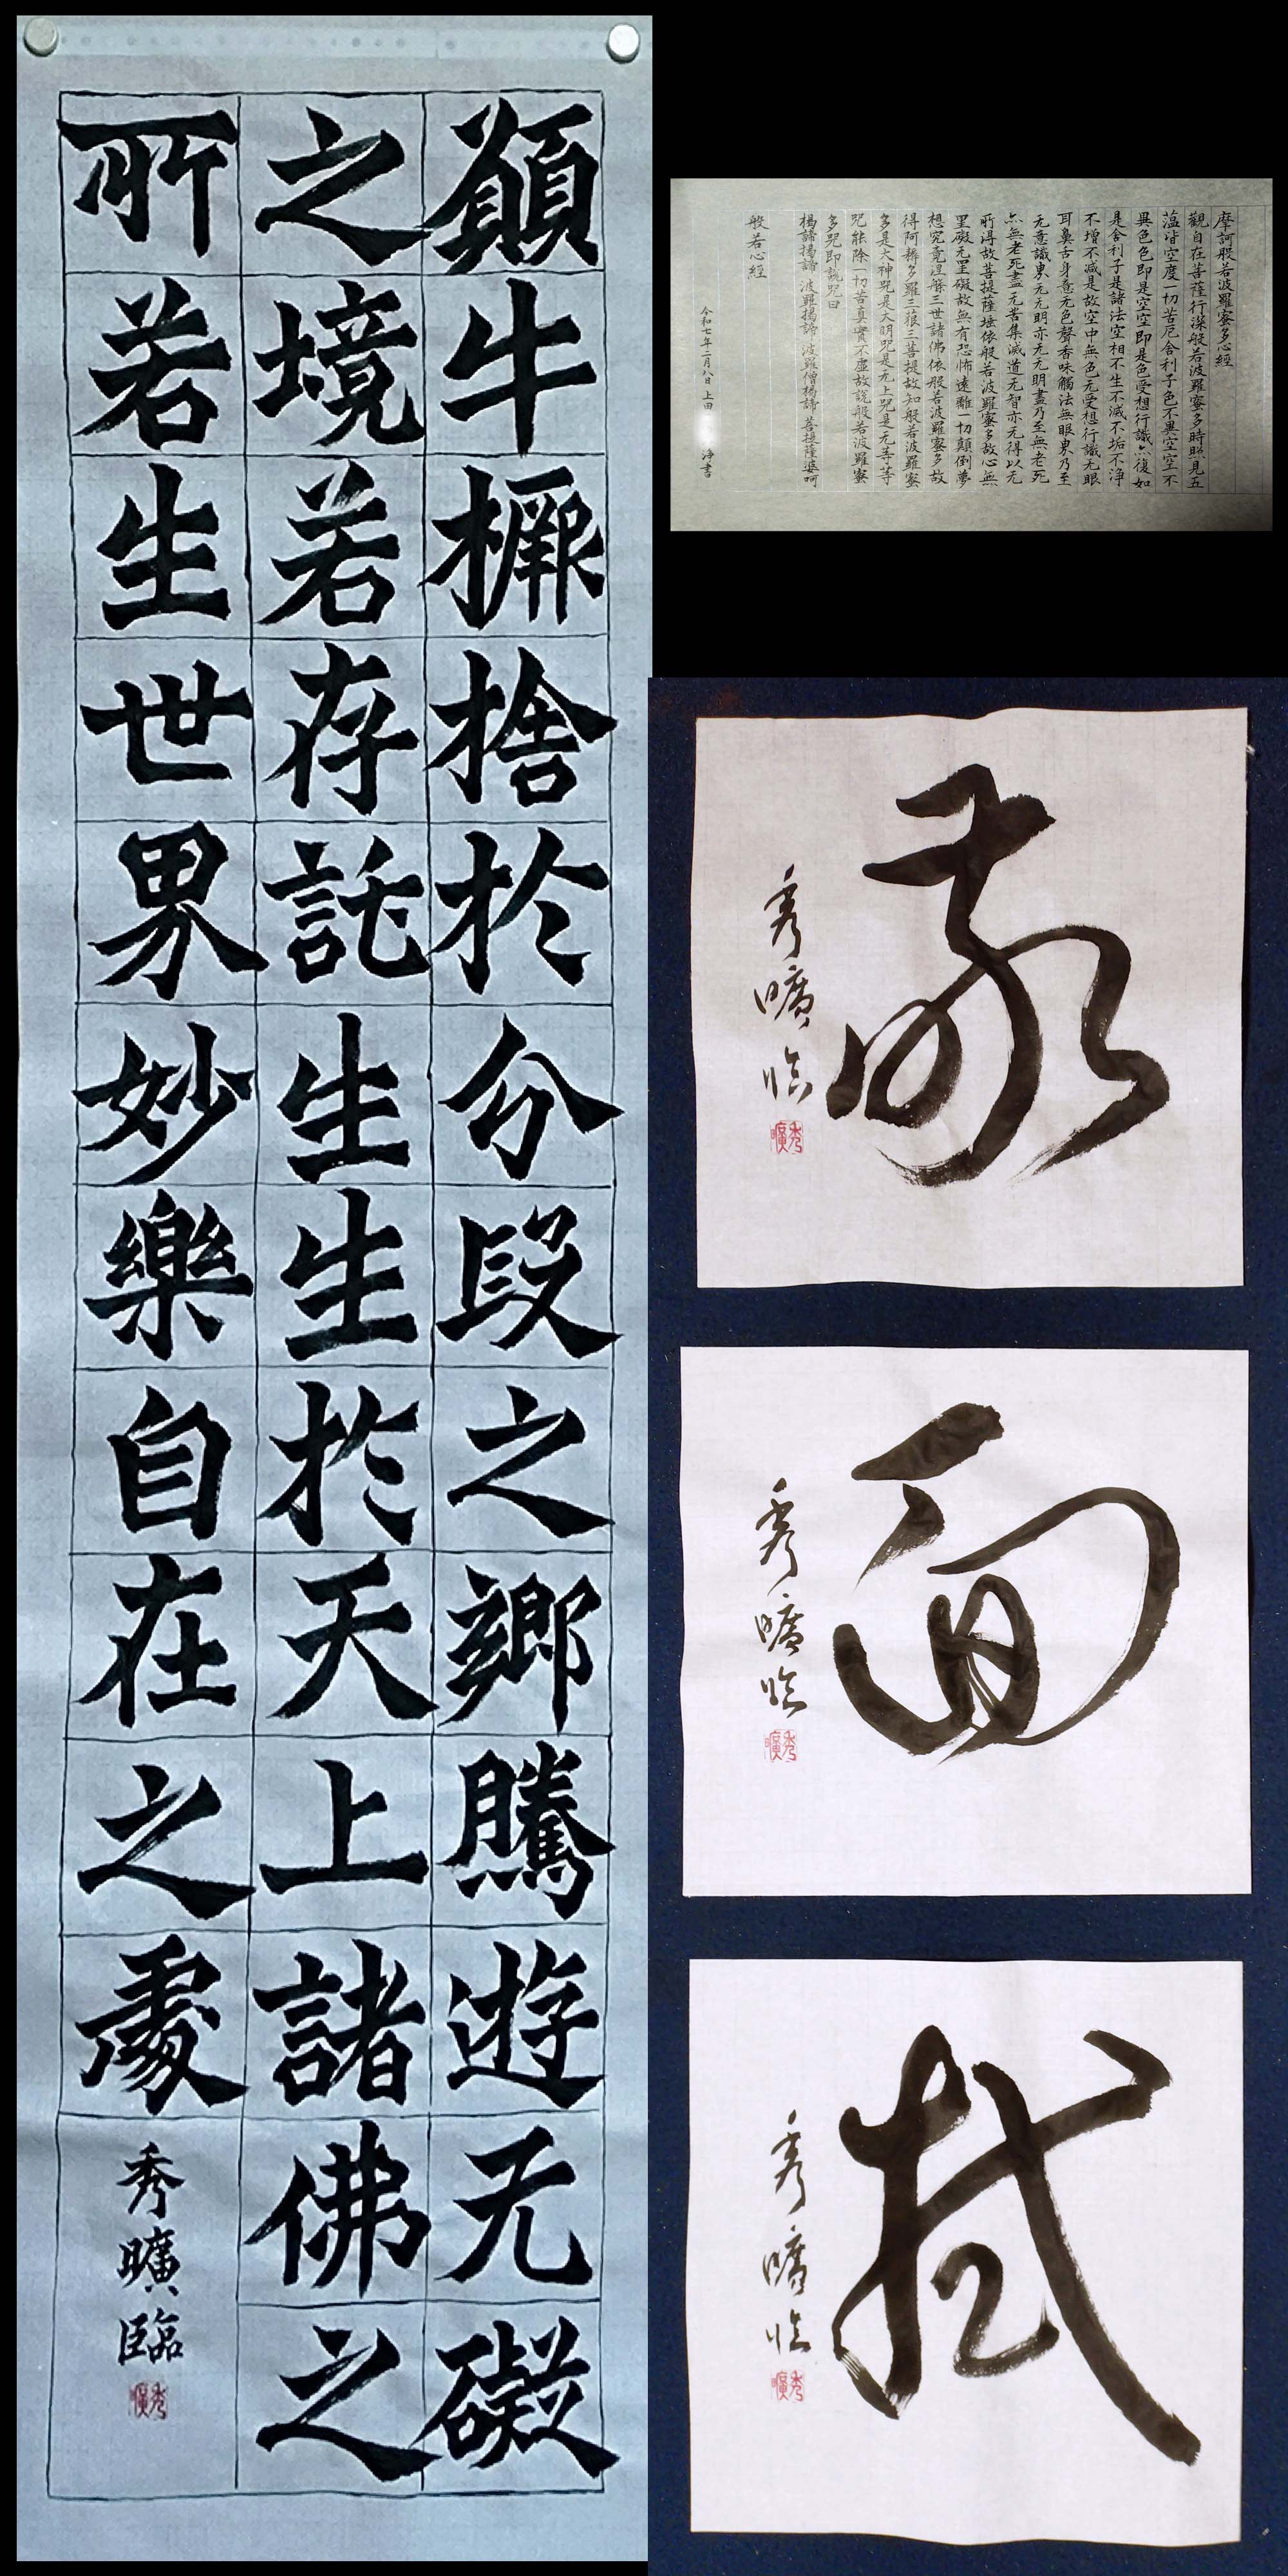 願牛橛捨於分段之鄉騰遊无礙
之境若存託生生於天上諸佛之
所若生世界妙樂自在之處
秀曠臨
秀曠
摩訶般若波羅蜜多心經
觀自在菩薩行深般若波羅蜜多時照見五
薀皆空度一切苦厄舍利子色不異空空不
異色色即是空空即是色受想行識亦復如
是舍利子是諸法空相不生不滅不垢不浄
不增不減是故空中無色无受想行識无眼
耳鼻舌身意无色聲香味觸法無眼界乃至
无意識界无无明亦无无明盡乃至無老死
亦無老死盡无苦集滅道无智亦无得以无
所得故菩提薩埵依般若波羅蜜多故心無
罣礙无罣礙故無有恐怖遠離一切顛倒夢
想究竟涅槃三世諸佛依般若波羅蜜多故
得阿耨多羅三藐三菩提故知般若波羅蜜
多是大神咒是大明咒是无上咒是无等等
咒能除一切苦真實不虛故說般若波羅蜜
多咒即說咒曰
揭諦揭諦 波羅揭諦 波羅僧揭諦 菩提薩婆呵
般若心經
令和七年二月八日 上田 浄書
秀曠臨
秀曠
面
秀曠臨
秀曠
拭
秀曠臨
秀曠